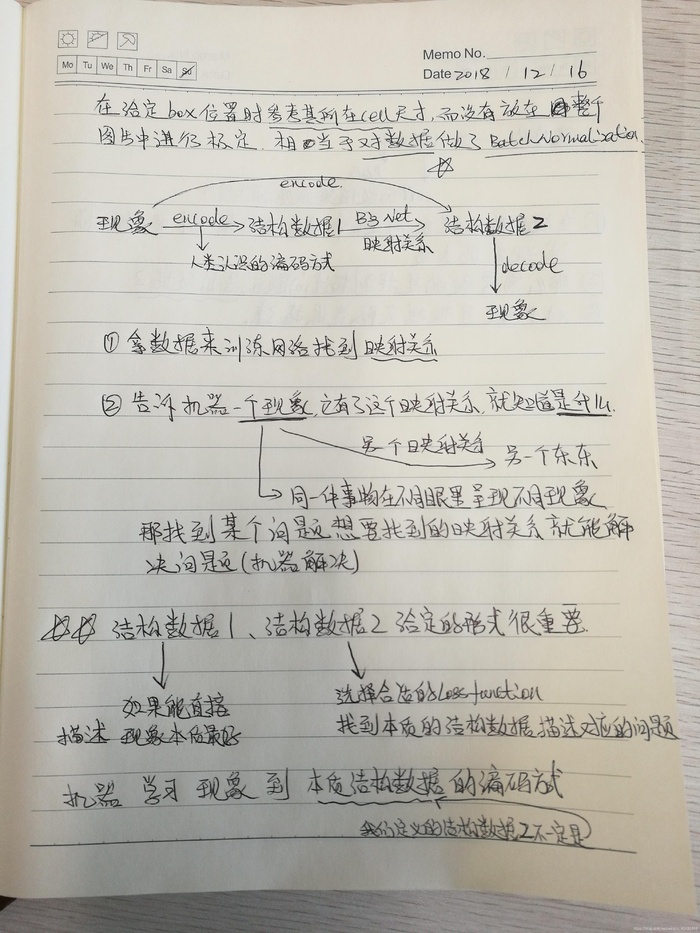 Memo No.
Mo Tu We Th Fr Sa Su
Date 2018 / 12 / 16
在给定box位置时参考其所在cell尺寸,而没有放在整个
图片中进行标定.相当于对数据做了BatchNormalization.
encode.
现象 encode 结构数据1 Big Net 结构数据2
映射关系
人类认识的编码方式
decode
现象
① 拿数据来训练网络找到映射关系
② 告诉机器一个现象,它有了这个映射关系,就知道是什么.
另一个映射关系
另一个东东
同一件事物在不同眼里呈现不同现象
那找到某个问题想要找到的映射关系就能解
决问题(机器解决)
结构数据1、结构数据2给定的形式很重要.
如果能直接
描述现象本质最好
选择合适的Loss function
找到本质的结构数据描述对应的问题
机器 学习 现象 到 本质结构数据 的编码方式
我们定义的结构数据2不一定是